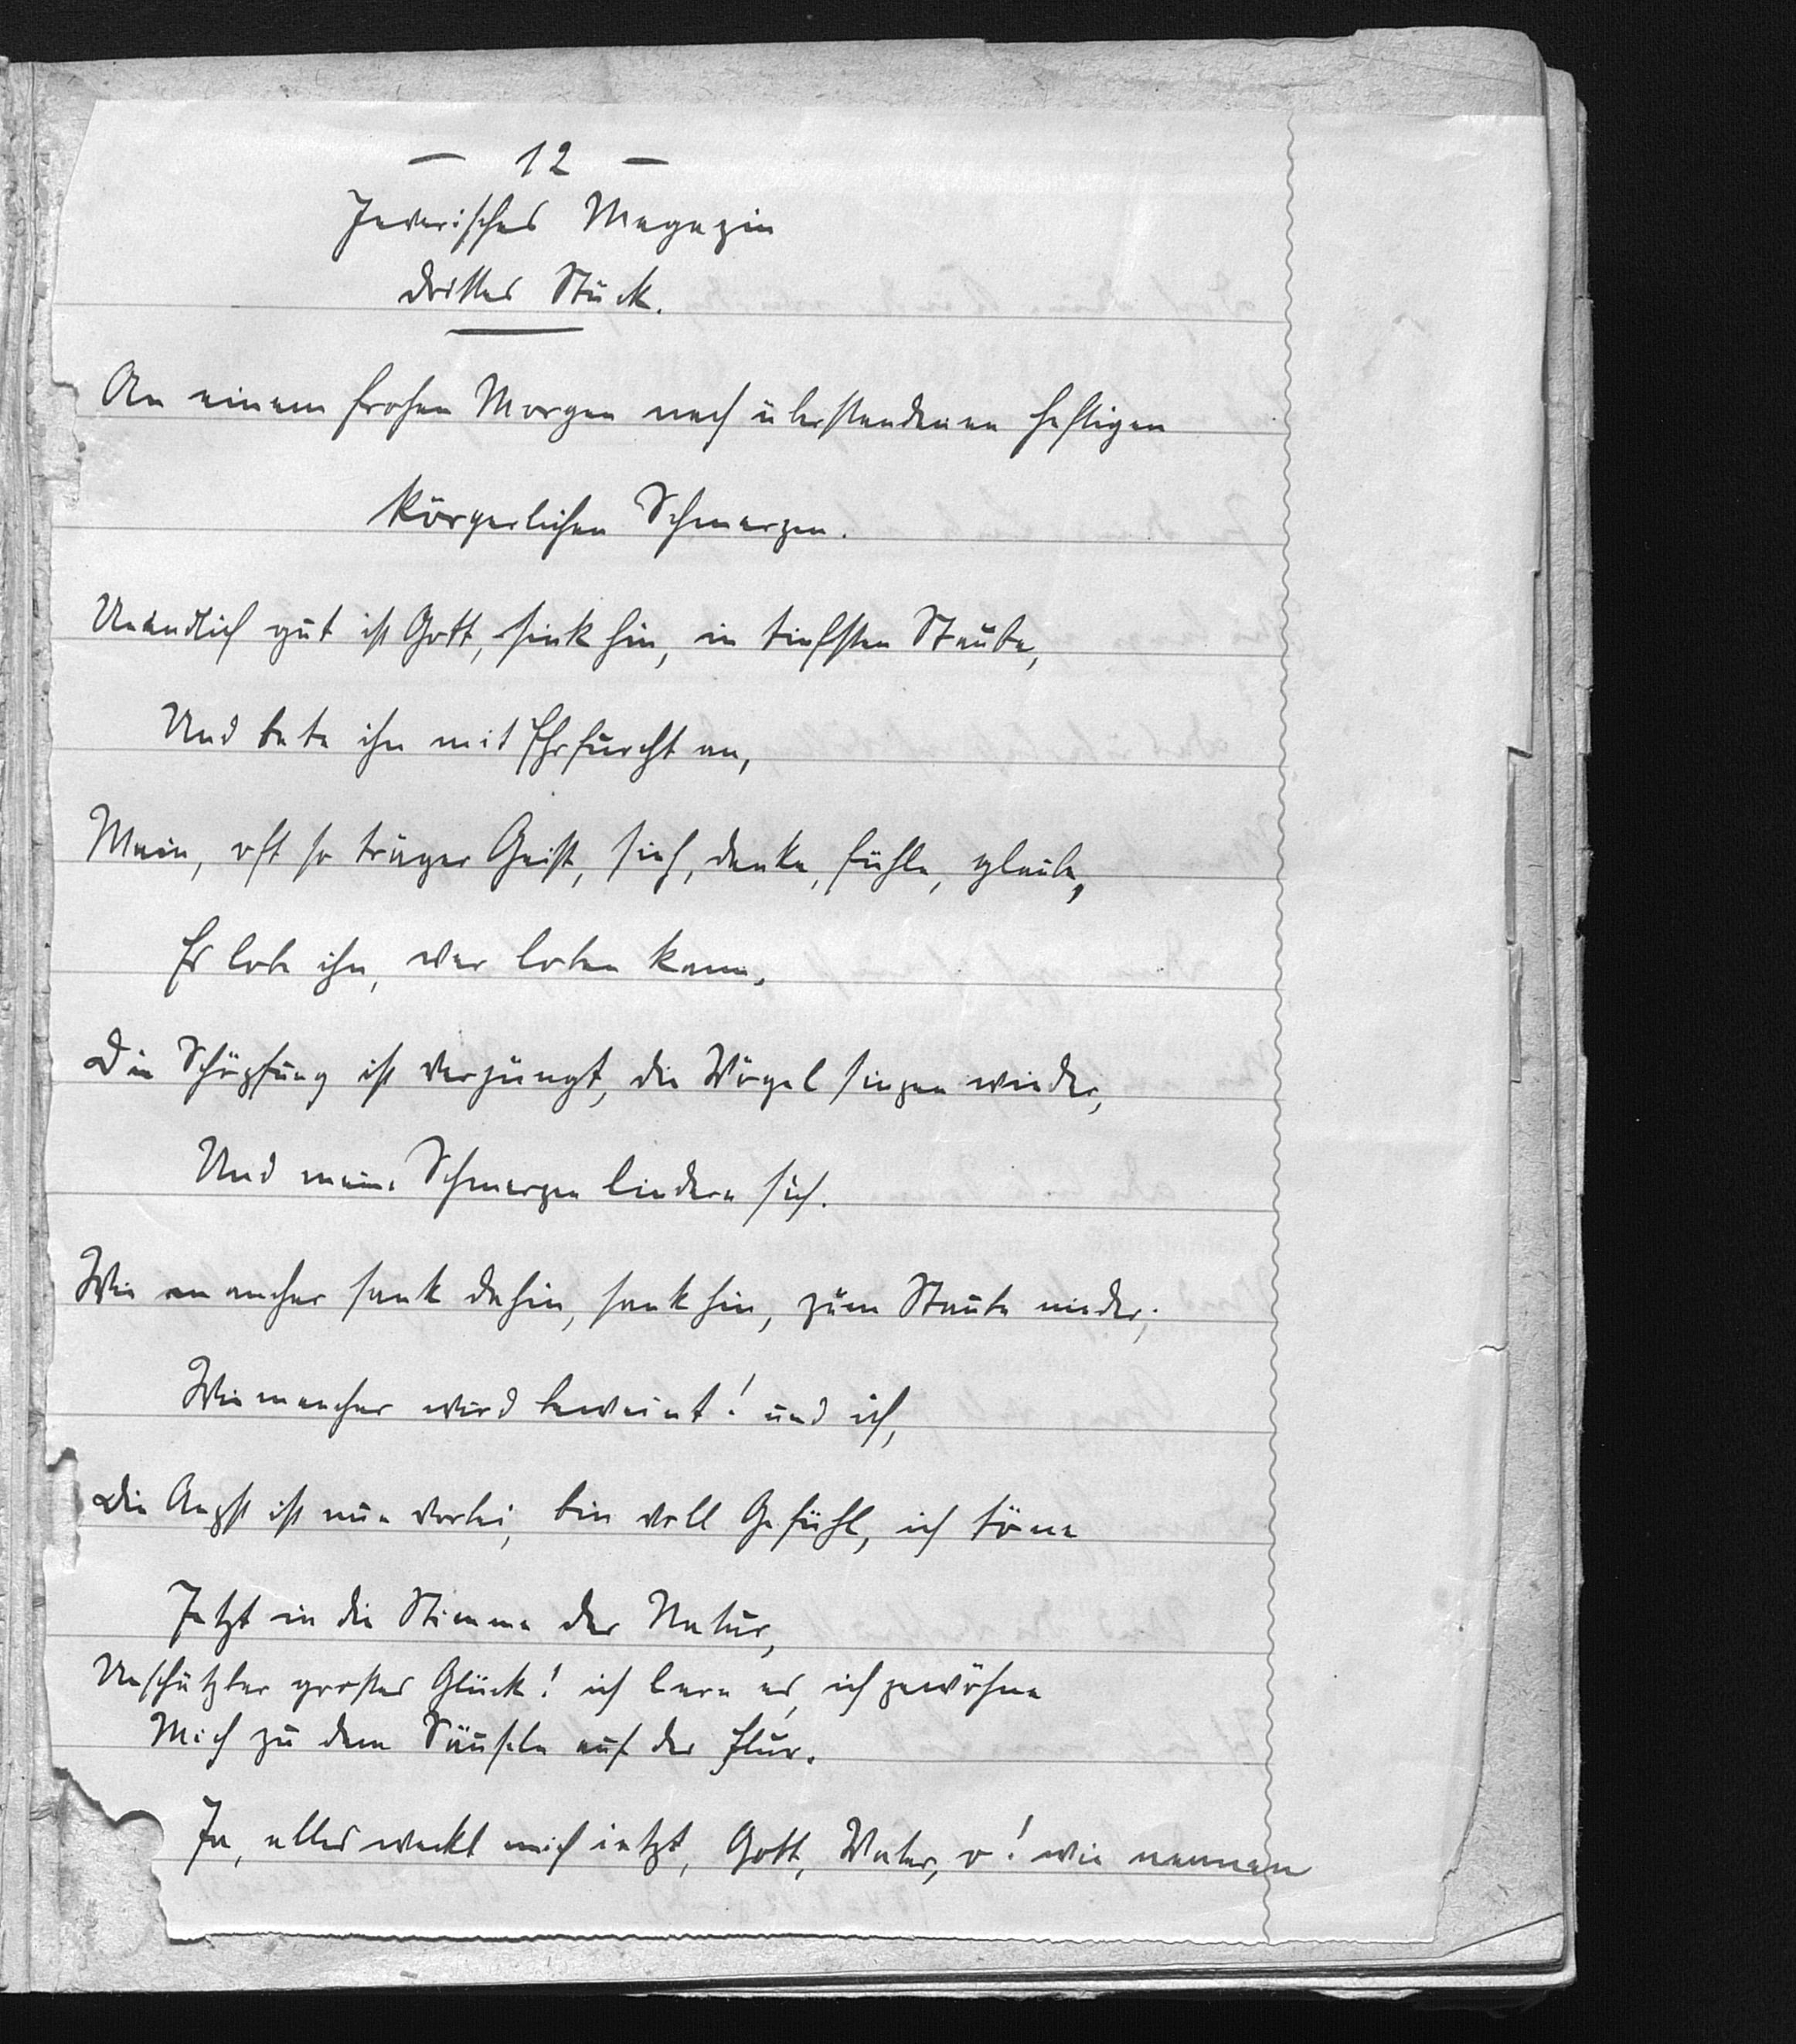 — 12 —
Jeverisches Magazin
drittes Stück.
An einem frohen Morgen nach überstandenen heftigen
körperlichen Schmerzen.
Unendlich gut ist Gott, sink hin, in tiefsten Staube,
Und bete ihn mit Ehrfurcht an,
Mein, oft so träger Geist, sieh, denke, fühle, glaube,
Es lobe ihn, wer loben kann,
Die Schöpfung ist verjüngt, die Vögel singen wieder,
Und meine Schmerzen lindern sich.
Wie mancher sank dahin, sank hin, zum Staube nieder;
Wie mancher wird beweint! und ich,
Die Angst ist nun vorbei, bin voll Gefühl, ich töne
Jetzt in die Stimme der Natur,
Unschätzbar großes Glück! ich lern es, ich gewöhne
Mich zu dem Säuseln auf der Flur.
Ja, alles weckt mich ietzt, Gott, Vater, o! wie nennen